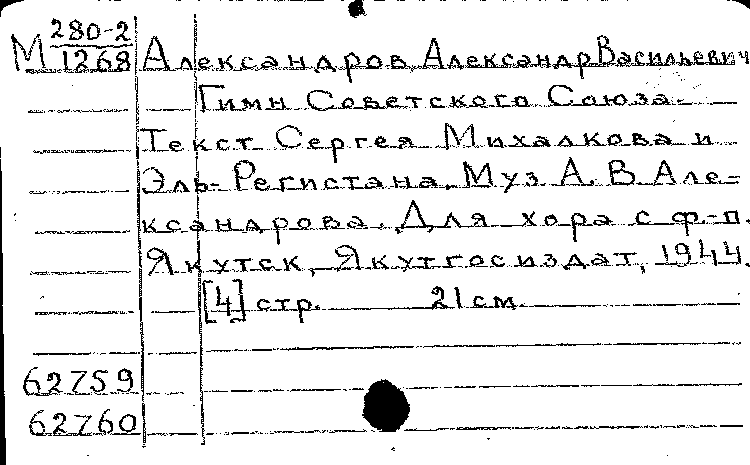 М 280-2
1268 Александров, Александр Васильевич
Гимн Советского Союза.
Текст Сергея Михалкова и
Эль-Регистана. Муз. А. В. Але-
ксандрова. Для хора с ф.-п.
Якутск, Якутгосиздат, 1944.
[4] стр. 21 см.
62759
62760